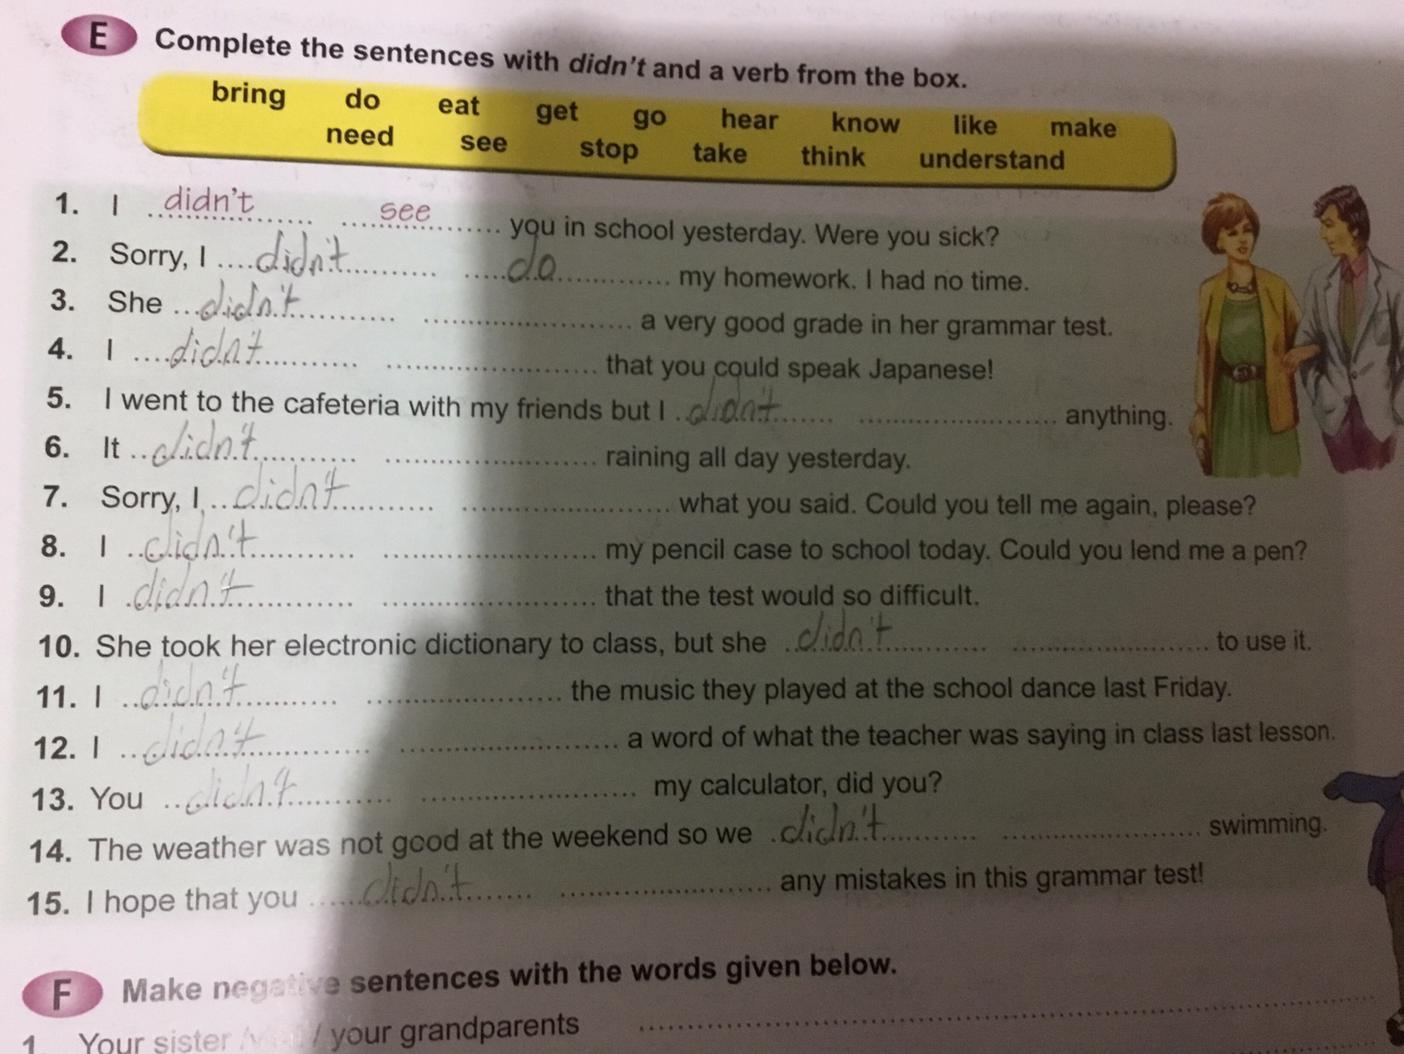 E Complete the sentences with didn't and a verb from the box.
bring do eat get go hear know like make
need see stop take think understand
1. I didn't see you in school yesterday. Were you sick?
2. Sorry, I didn't do my homework. I had no time.
3. She didn't a very good grade in her grammar test.
4. I didn't that you could speak Japanese!
5. I went to the cafeteria with my friends but I didn't anything.
6. It didn't raining all day yesterday.
7. Sorry, I didn't what you said. Could you tell me again, please?
8. I didn't my pencil case to school today. Could you lend me a pen?
9. I didn't that the test would so difficult.
10. She took her electronic dictionary to class, but she didn't to use it.
11. I didn't the music they played at the school dance last Friday.
12. I didn't a word of what the teacher was saying in class last lesson.
13. You didn't my calculator, did you?
14. The weather was not good at the weekend so we didn't swimming.
15. I hope that you didn't any mistakes in this grammar test!
F Make negative sentences with the words given below.
1. Your sister / / your grandparents